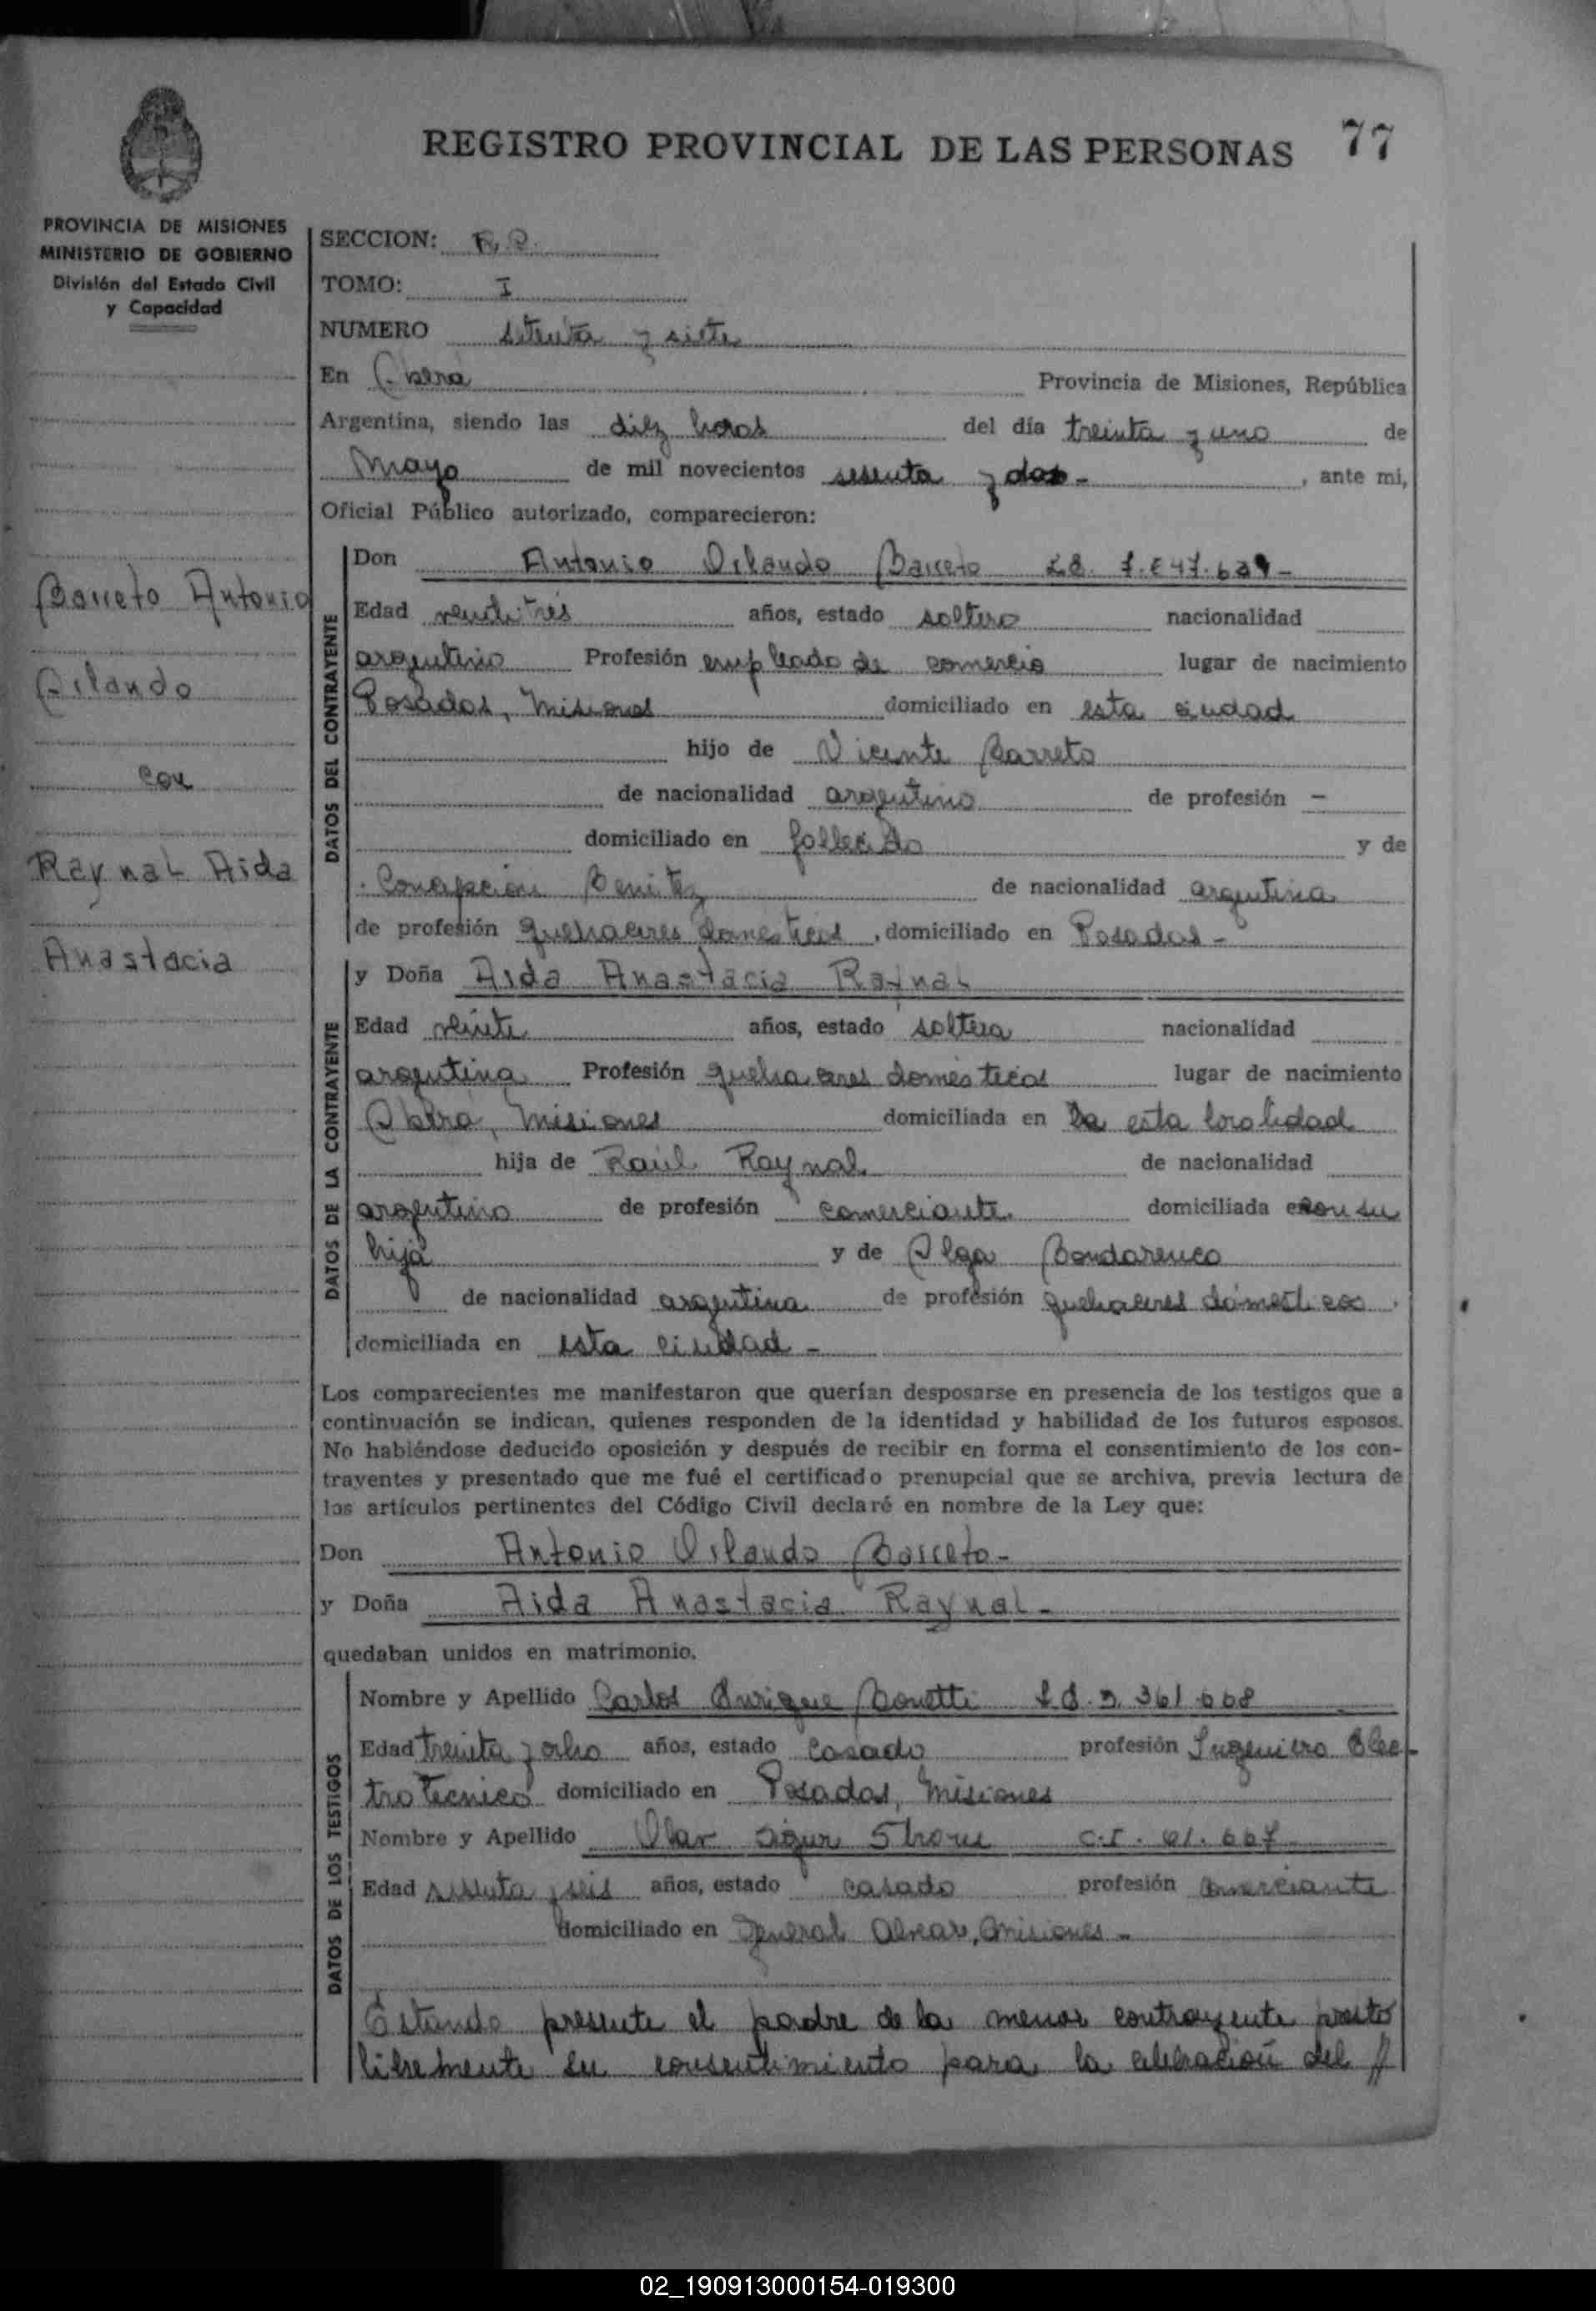 REGISTRO PROVINCIAL DE LAS PERSONAS 77
PROVINCIA DE MISIONES
MINISTERIO DE GOBIERNO
División del Estado Civil
y Capacidad
Barreto Antonio
Orlando
con
Raynal Aida
Anastacia
SECCION:
TOMO: I
NUMERO setenta y siete
En Oberá Provincia de Misiones, República
Argentina, siendo las diez horas del día treinta y uno de
Mayo de mil novecientos sesenta y dos - , ante mi,
Oficial Público autorizado, comparecieron:
DATOS DEL CONTRAYENTE
Don Antonio Orlando Barreto
Edad veintitrés años, estado soltero nacionalidad
argentino Profesión empleado de comercio lugar de nacimiento
Posadas, Misiones domiciliado en esta ciudad
hijo de Vicente Barreto
de nacionalidad argentino de profesión -
domiciliado en fallecido y de
Concepcion Benitez de nacionalidad argentina
de profesión quehaceres domesticos , domiciliado en Posadas -
DATOS DE LA CONTRAYENTE
y Doña Aida Anastacia Raynal
Edad veinte años, estado soltera nacionalidad
argentina Profesión quehaceres domesticos lugar de nacimiento
Oberá, Misiones domiciliada en esta localidad
hija de Raúl Raynal de nacionalidad
argentino de profesión comerciante domiciliada en con su
hija y de Olga Bondarenco
de nacionalidad argentina de profesión quehaceres domesticos .
domiciliada en esta ciudad -
Los comparecientes me manifestaron que querían desposarse en presencia de los testigos que a
continuación se indican, quienes responden de la identidad y habilidad de los futuros esposos.
No habiéndose deducido oposición y después de recibir en forma el consentimiento de los con-
trayentes y presentado que me fué el certificado prenupcial que se archiva, previa lectura de
los artículos pertinentes del Código Civil declaré en nombre de la Ley que:
Don Antonio Orlando Barreto -
y Doña Aida Anastacia Raynal -
quedaban unidos en matrimonio.
DATOS DE LOS TESTIGOS
Nombre y Apellido Carlos Enrique Bonetti
Edad treinta y ocho años, estado casado profesión Ingeniero Elec
trotecnico domiciliado en Posadas, Misiones
Nombre y Apellido Olav
Edad sesenta y seis años, estado casado profesión comerciante
domiciliado en General Alvear, Misiones -
Estando presente el padre de la menor contrayente presto
libremente su consentimiento para la celebración del //
02_190913000154-019300